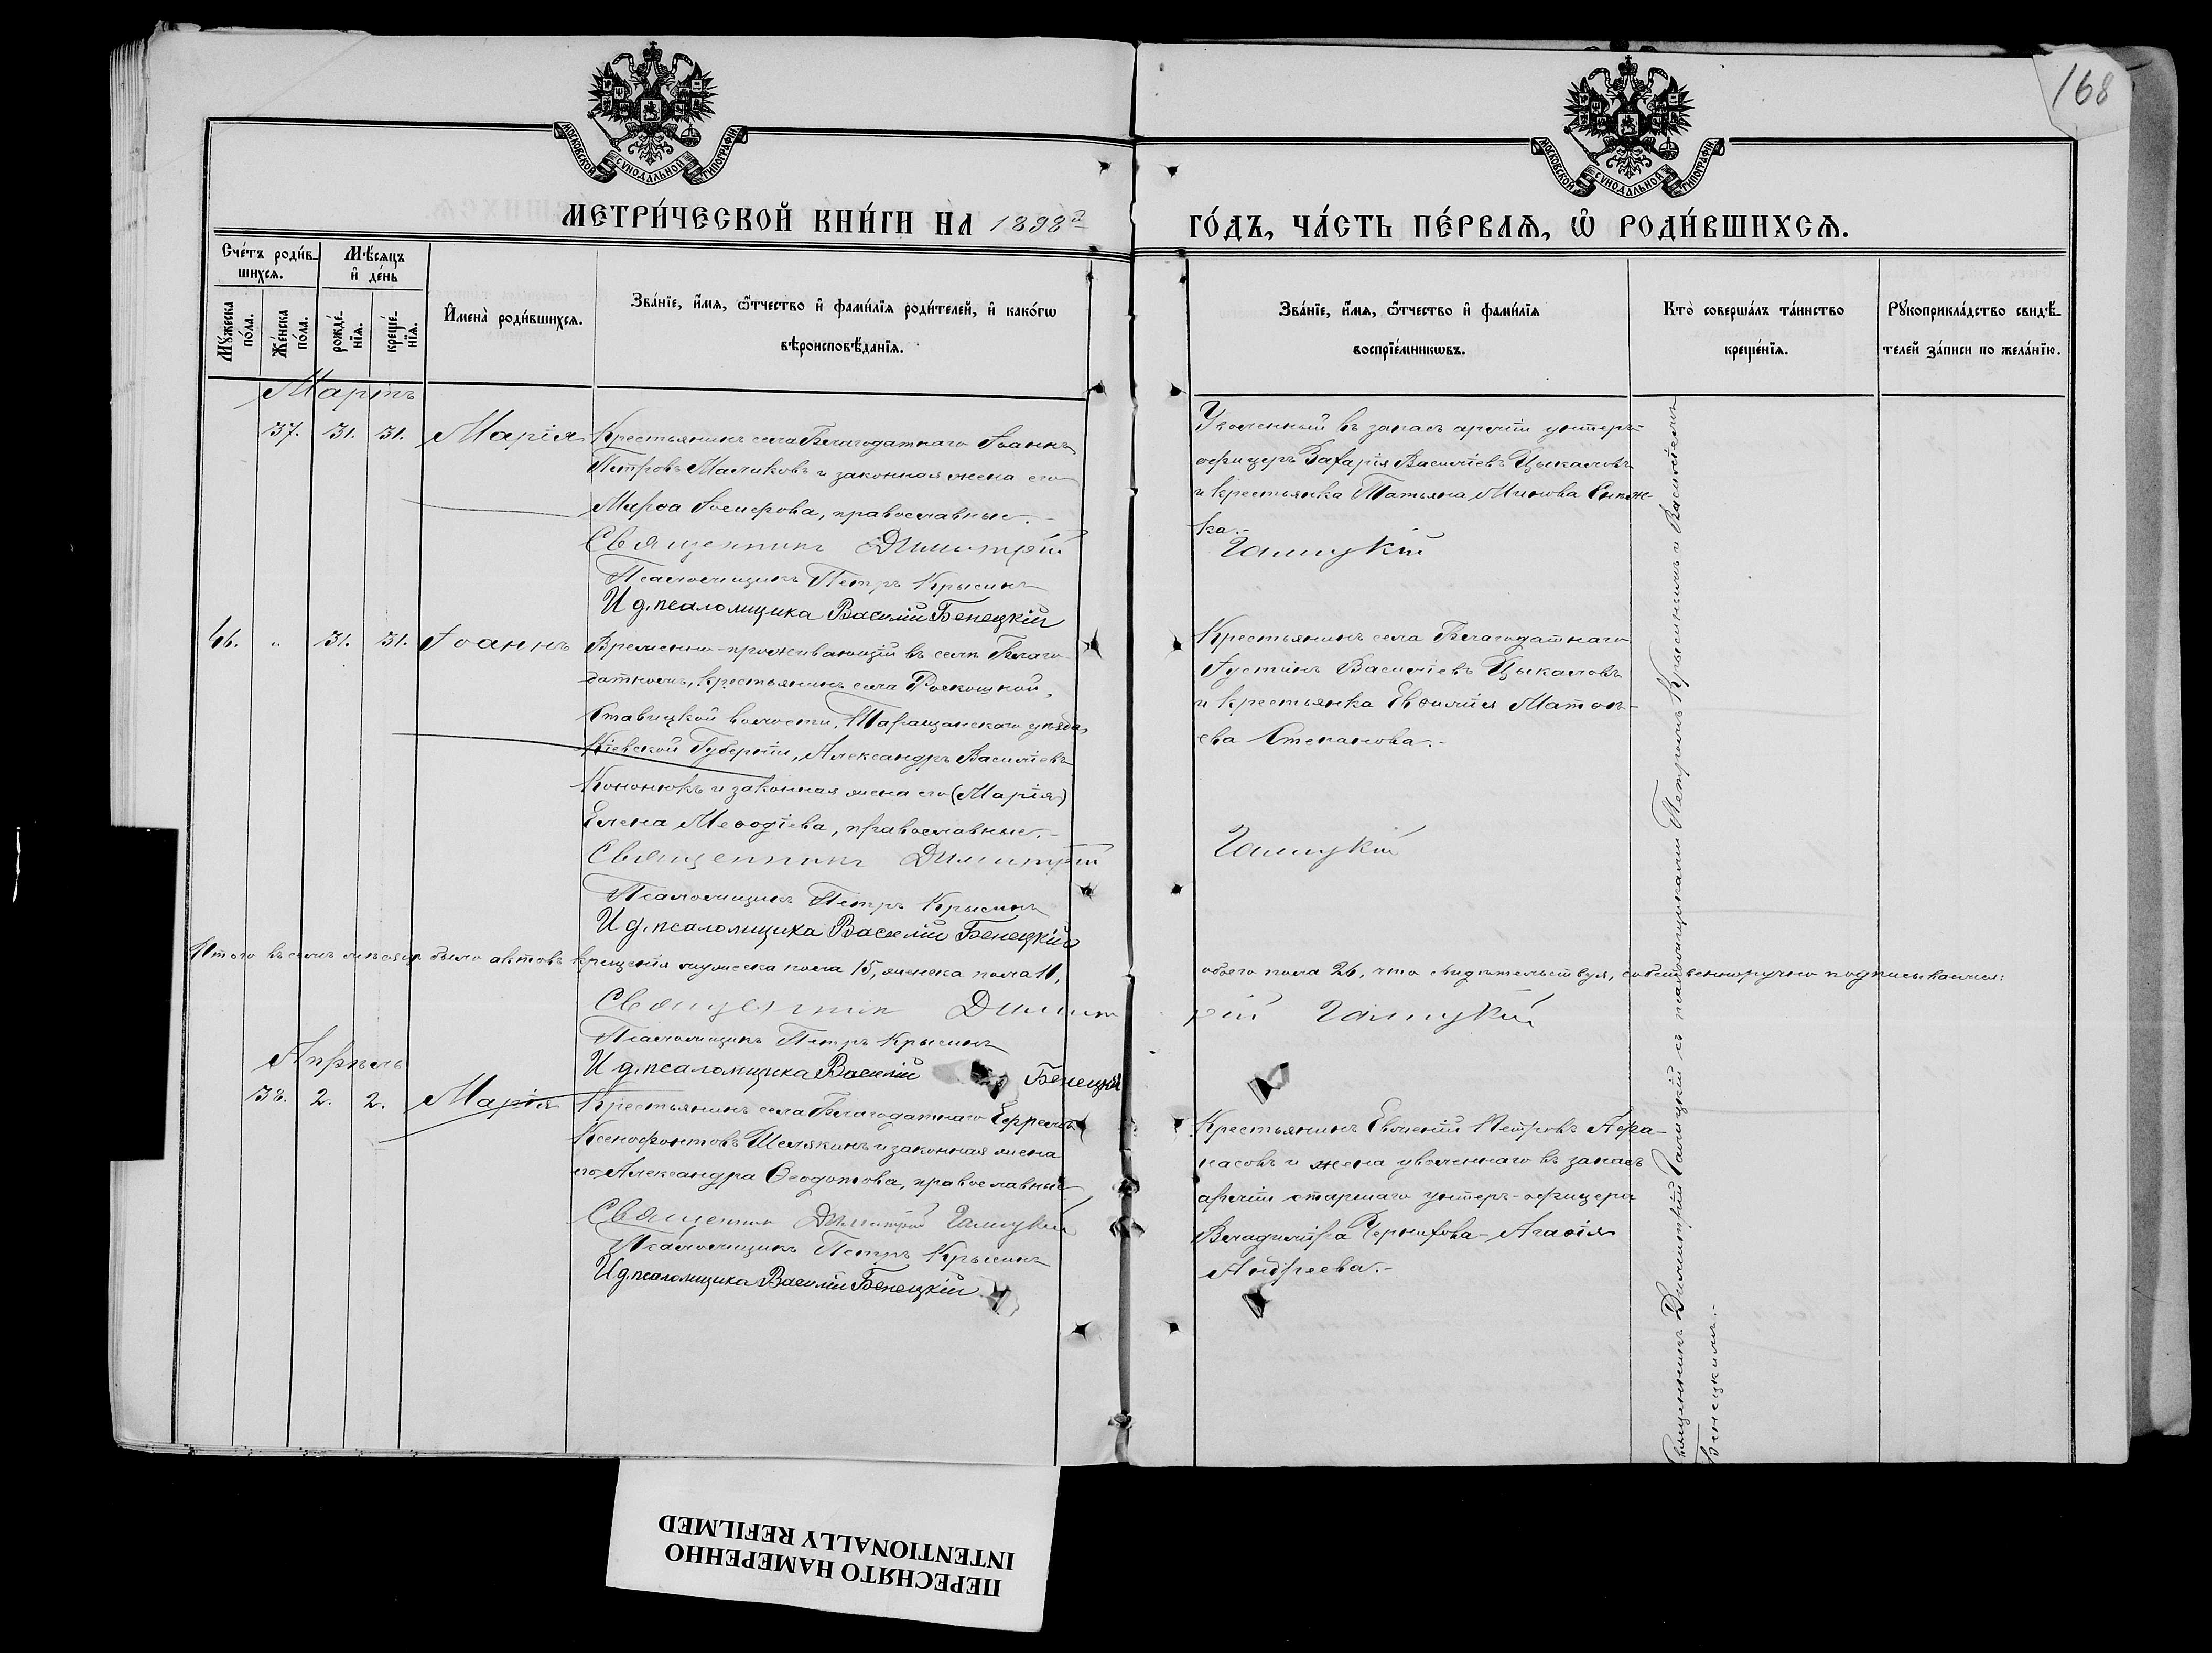 168
МОСКОВСКОЙ СУНОДАЛЬНОЙ ТИПОГРАФІИ
МОСКОВСКОЙ СУНОДАЛЬНОЙ ТИПОГРАФІИ
МЕТРИ́ЧЕСКОЙ КНИ́ГИ НА 1898й
ГО́ДЪ, ЧА́СТЬ ПЕ́РВАѦ, Ѡ РОДИ́ВШИХСѦ.
Сче́тъ роди́в-
шихсѧ.
Мꙋ́жеска по́ла.
Же́нска по́ла.
Мѣ́сѧцъ
и де́нь
рожде́-
нїѧ.
креще́-
нїѧ.
И́мена̀ роди́вшихсѧ.
Зва́нїе, и́мѧ, ѻ́тчество и фами́лїѧ роди́телей, и како́гѡ
вѣроисповѣ́данїѧ.
Зва́нїе, и́мѧ, ѻ́тчество и фами́лїѧ
воспрїе́мникѡвъ.
Кто̀ соверша́лъ та́инство
креще́нїѧ.
Рꙋкоприкла́дство свидѣ́-
телей за́писи по жела́нїю.
Мартъ
37. 31. 31. Марія
Крестьянинъ села Благодатнаго Іоаннъ
Петровъ Маликовъ и законная жена его
Марѳа Іосифова, православные.-
Священникъ Димитрій
Псаломщикъ Петръ Крысинъ
И д. псаломщика Василій Бенецкій
Уволенный въ запасъ арміи унтеръ-
офицеръ Захарія Василіевъ Цыкаловъ
и крестьянка Татьяна Минова
ка.-
Галицкій
46. " 31. 31. Іоаннъ
Временно-проживающій въ селѣ Благо-
датномъ, крестьянинъ села Роскошной,
Ставицкой волости, Таращанскаго уѣзда,
Кіевской Губерніи, Александръ Василіевъ
Кононюкъ и законная жена его (Марія)
Елена Меѳодіева, православные.-
Священникъ Димитрій
Псаломщикъ Петръ Крысинъ
И д. псаломщика Василій Бенецкій
Крестьянинъ села Благодатнаго
Іустинъ Василіевъ Цыкаловъ
и крестьянка Евѳимія Матѳѣ-
ева Степанова.-
Галицкій
Итого въ семъ мѣсяцѣ было актовъ крещенія мужеска пола 15, женска пола 11,
обоего пола 26, что свидѣтельствуя, собственноручно подписываемся:
Священникъ Димит
рій Галицкій
Псаломщикъ Петръ Крысинъ
И д. псаломщика Василій Бенецкій
Апрѣль
38. 2. 2. Марія
Крестьянинъ села Благодатнаго Ефремъ
Ксенофонтовъ Шелякинъ и законная жена
его Александра Ѳеодотова, православные
Священникъ Димитрій Галицкій
Псаломщикъ Петръ Крысинъ
И д. псаломщика Василій Бенецкій
Крестьянинъ Евѳимій Петровъ Аѳа-
насовъ и жена уволеннаго въ запасъ
арміи старшаго унтеръ-офицера
Владиміра Чернихова- Агаѳія
Андреева.-
Священникъ Димитрій Галицкій съ псаломщиками Петромъ Крысинымъ и Василіемъ
Бенецкимъ.-
ПЕРЕСНЯТО НАМЕРЕННО
INTENTIONALLY REFILMED